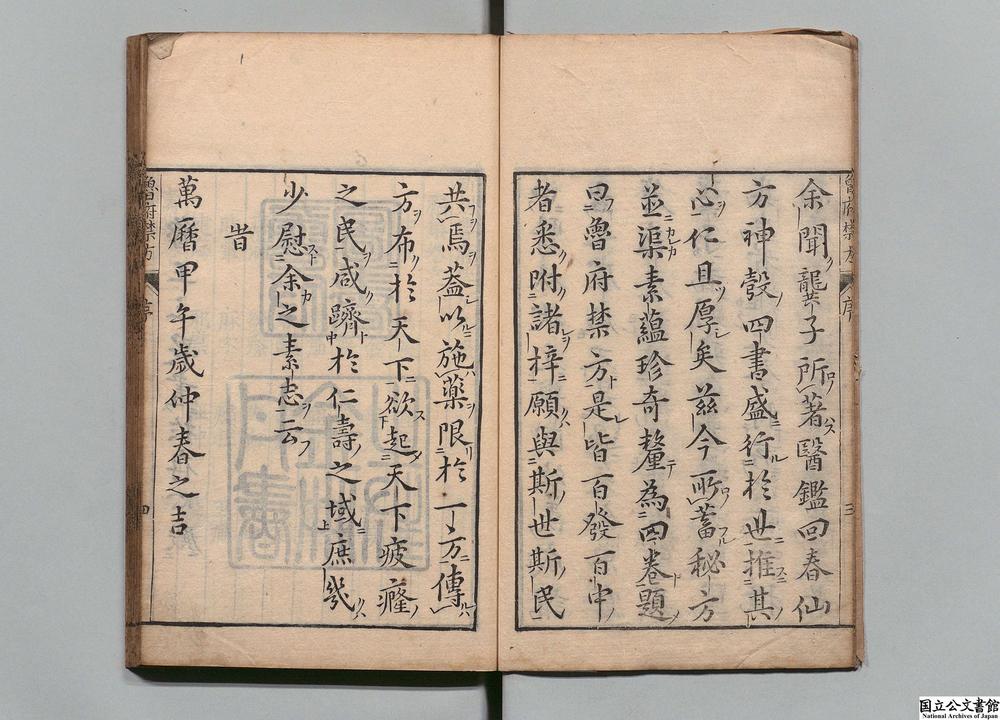 余聞龔子所著醫鑑回春仙
方神彀四書盛行於世推其
心仁且厚矣茲今所蓄秘方
並渠素蘊珍奇釐為四卷題
曰魯府禁方是皆百發百中
者悉附諸梓願與斯世斯民
共焉蓋以施藥限於一方傳
方布於天下欲起天下疲癃
之民咸躋於仁壽之域庶幾
少慰余之素志云
旹
萬曆甲午歲仲春之吉
魯府禁方
序
三
魯府禁方
序
四
国立公文書館
National Archives of Japan